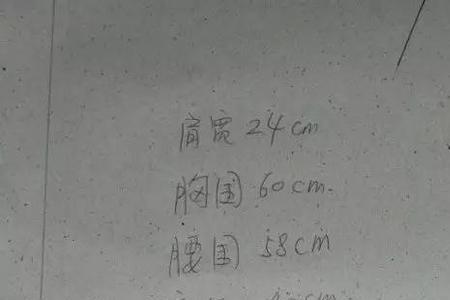 肩宽 24cm
胸围 60cm.
腰围 58cm